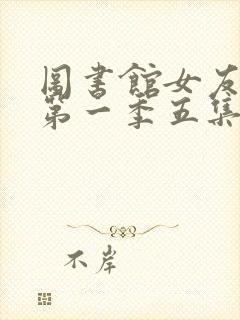 圖書館女友
第一季五集
不岸